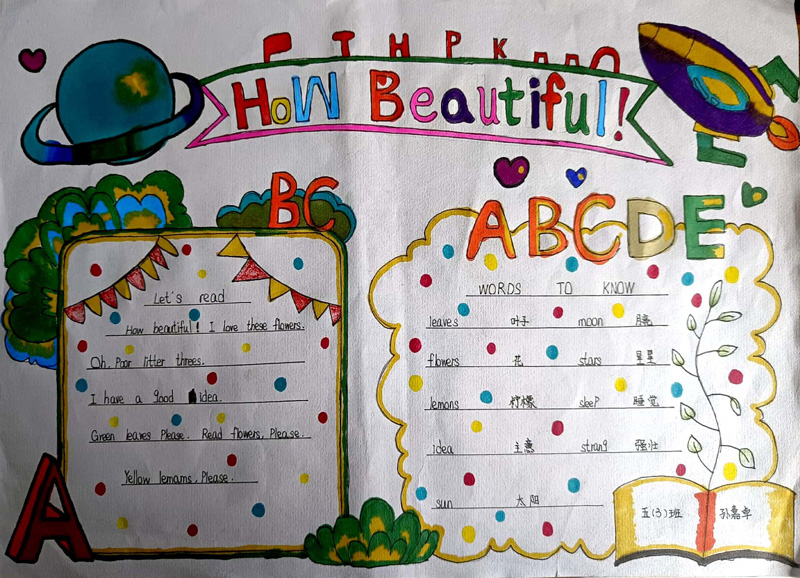 T H P K
HoW Beautiful!
BC
ABCDE
Let's read
How beautiful! I love these flowers.
Oh. Poor litter threes.
I have a good idea.
Green leaves Please. Read flowers, Please.
Yellow lemams, Please.
A
WORDS TO KNOW
leaves 叶子 moon 月亮
flowers 花 stars 星星
lemons 柠檬 sleep 睡觉
idea 主意 strang 强壮
sun 太阳
五(3)班 孙嘉卓